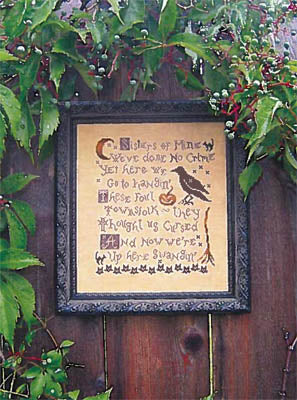 Sisters of Mine
We've done No Crime
Yet here we
Go to hangin'
These Foul
Townsfolk ~ they
Thought us Cursed
And Now we're
Up here Swangin'